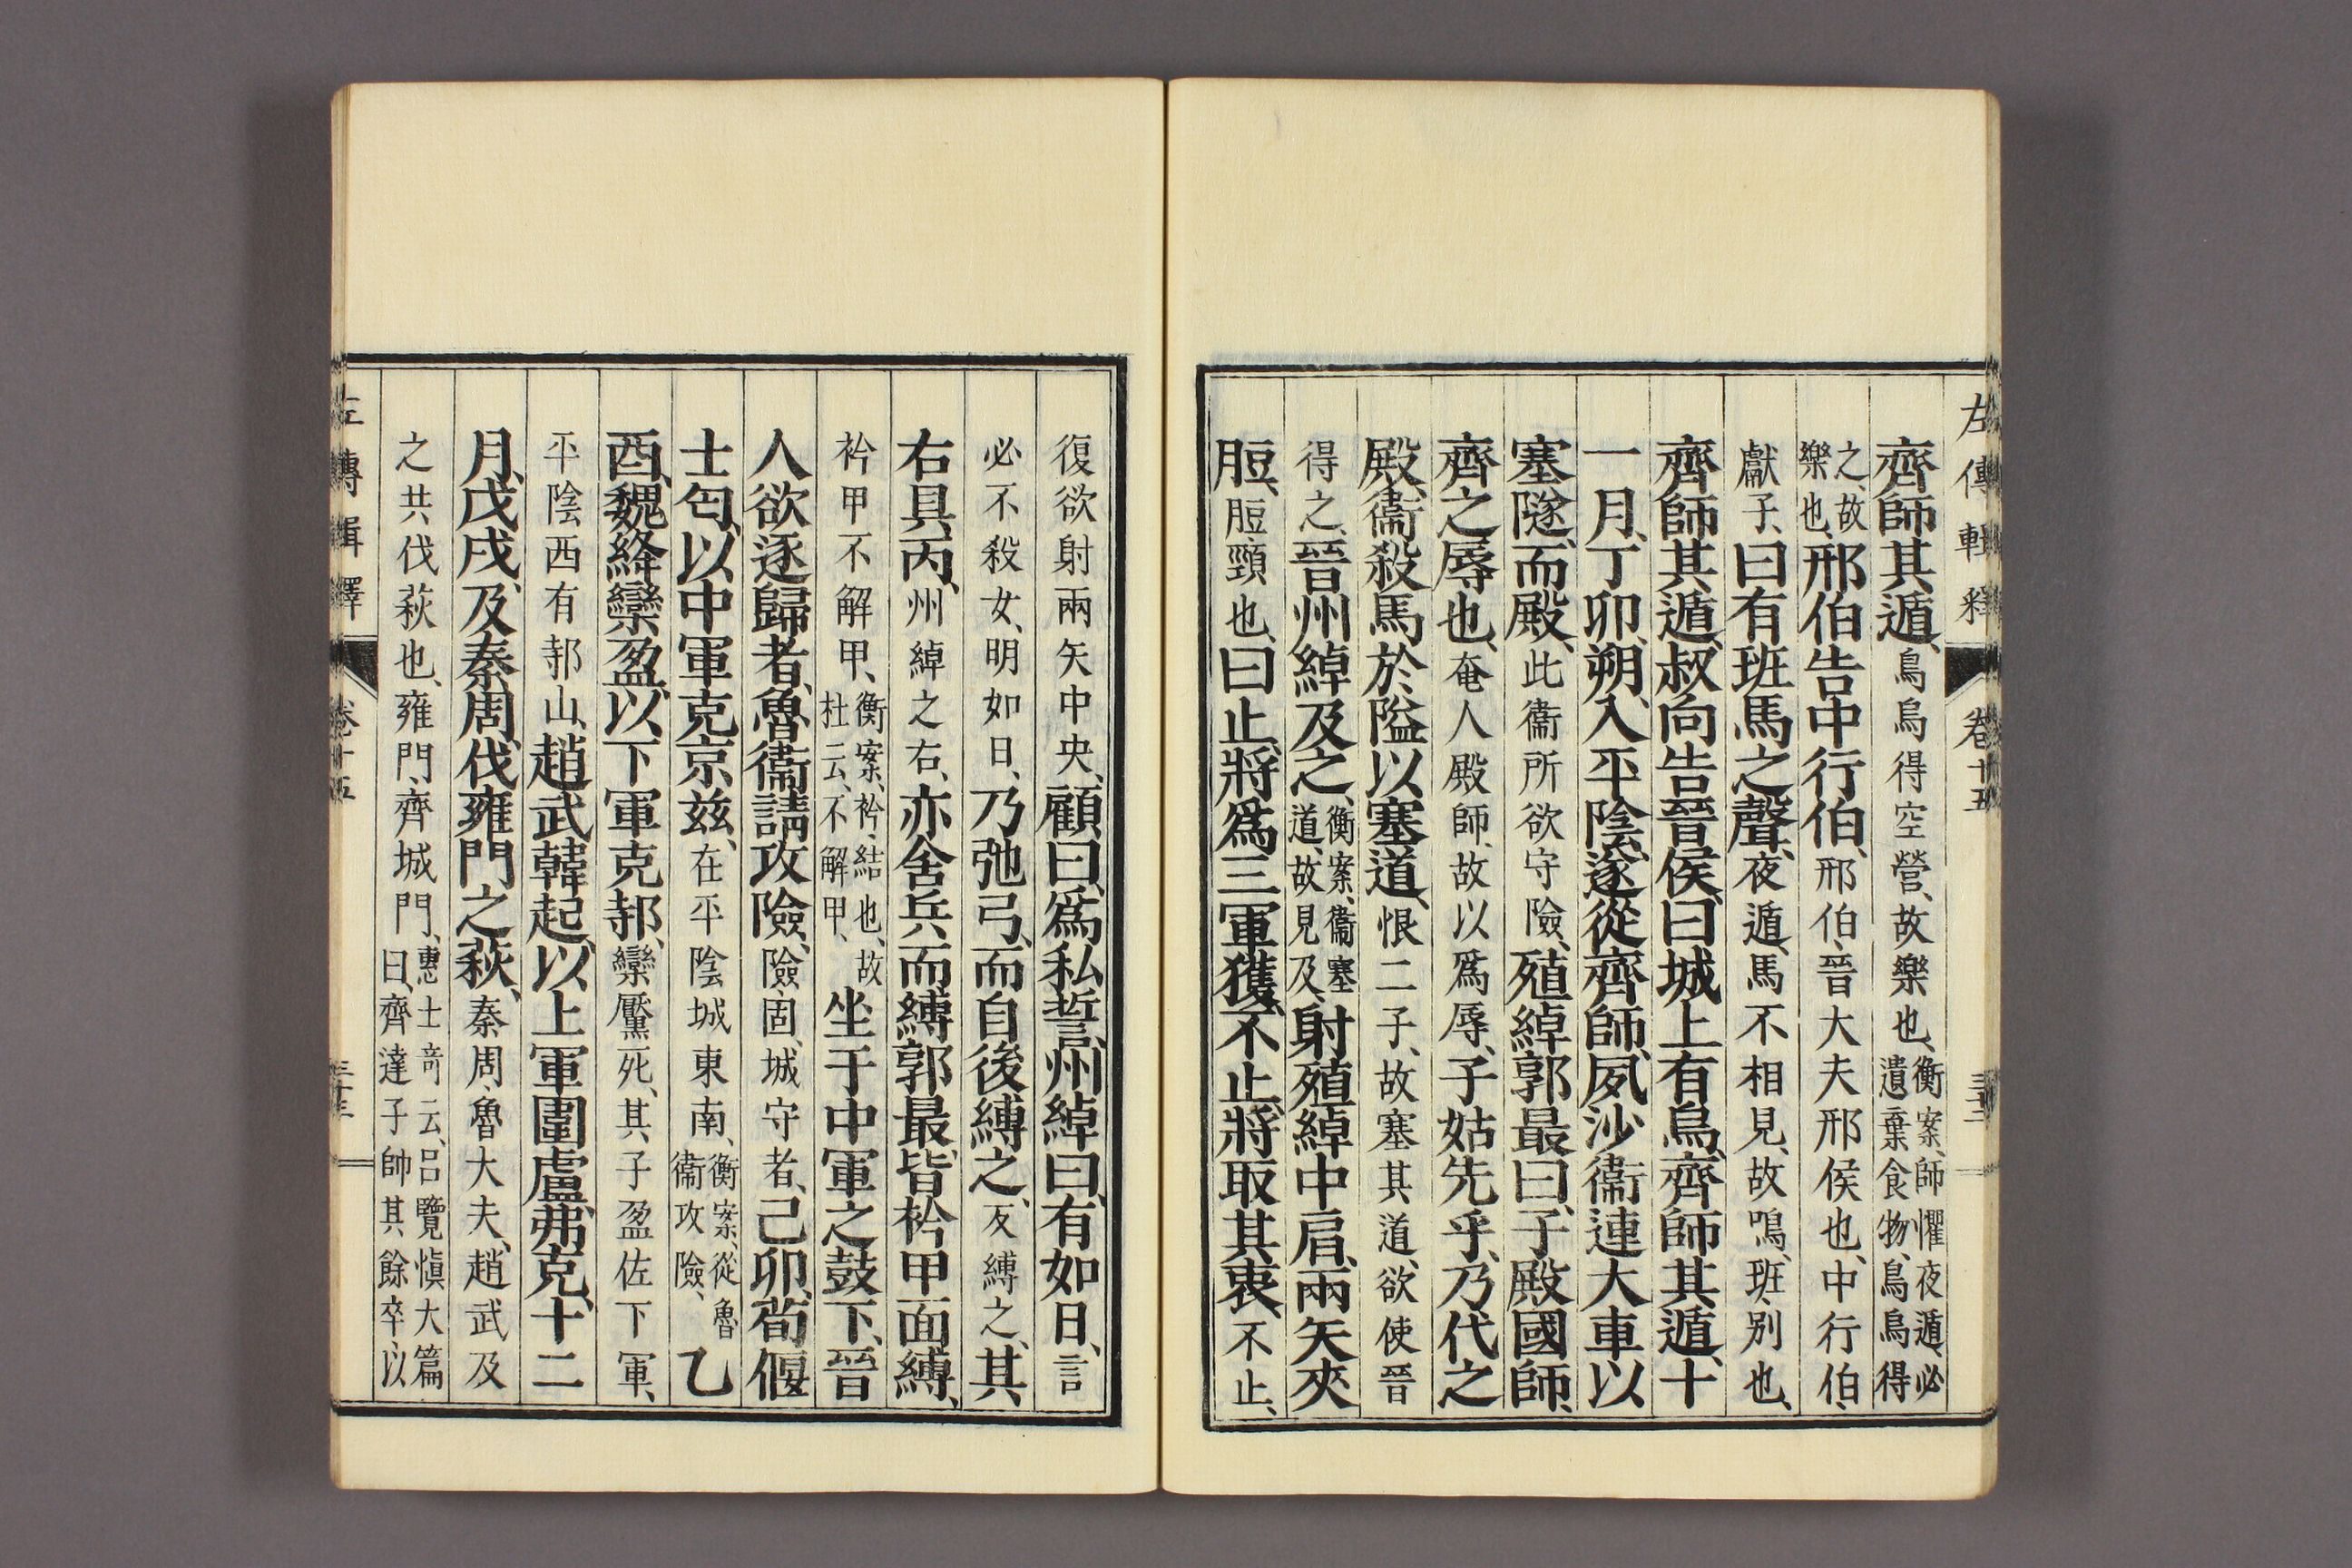 左傳輯釋 卷十五
齊師其遁、鳥烏得空營、故樂也、衡案、師懼夜遁、必遺棄食物、鳥烏得
之、故樂也、邢伯告中行伯、邢伯、晉大夫邢侯也、中行伯、
獻子、曰有班馬之聲、夜遁、馬不相見、故鳴、班、別也、
齊師其遁、叔向告晉侯、曰城上有烏、齊師其遁、十
一月、丁卯、朔、入平陰、遂從齊師、夙沙衞連大車以
塞隧、而殿、此衞所欲守險、殖綽郭最曰、子殿國師、
齊之辱也、奄人殿師、故以爲辱、子姑先乎、乃代之
殿、衞殺馬於隘以塞道、恨二子、故塞其道、欲使晉
得之、晉州綽及之、衡案、衞塞道、故見及、射殖綽中肩、兩矢夾
脰、脰、頸也、曰止、將爲三軍獲、不止、將取其衷、不止、
復欲射兩矢中央、顧曰、爲私誓、州綽曰、有如日、言
必不殺女、明如日、乃弛弓、而自後縛之、反縛之、其
右具丙、州綽之右、亦舍兵、而縛郭最、皆衿甲面縛、
衿甲不解甲、衡案、衿、結也、故杜云、不解甲、坐于中軍之鼓下、晉
人欲逐歸者、魯衞請攻險、險、固、城守者、己卯、荀偃
士匄、以中軍克京兹、在平陰城東南、衡案、從魯衞攻險、乙
酉、魏絳欒盈、以下軍克邿、欒黶死、其子盈佐下軍、
平陰西有邿山、趙武韓起、以上軍圍盧、弗克、十二
月、戊戌、及秦周、伐雍門之萩、秦周、魯大夫、趙武及
之共伐萩也、雍門、齊城門、惠士奇云、呂覽愼大篇曰、齊達子帥其餘卒、以
左傳輯釋 卷十五 三十三